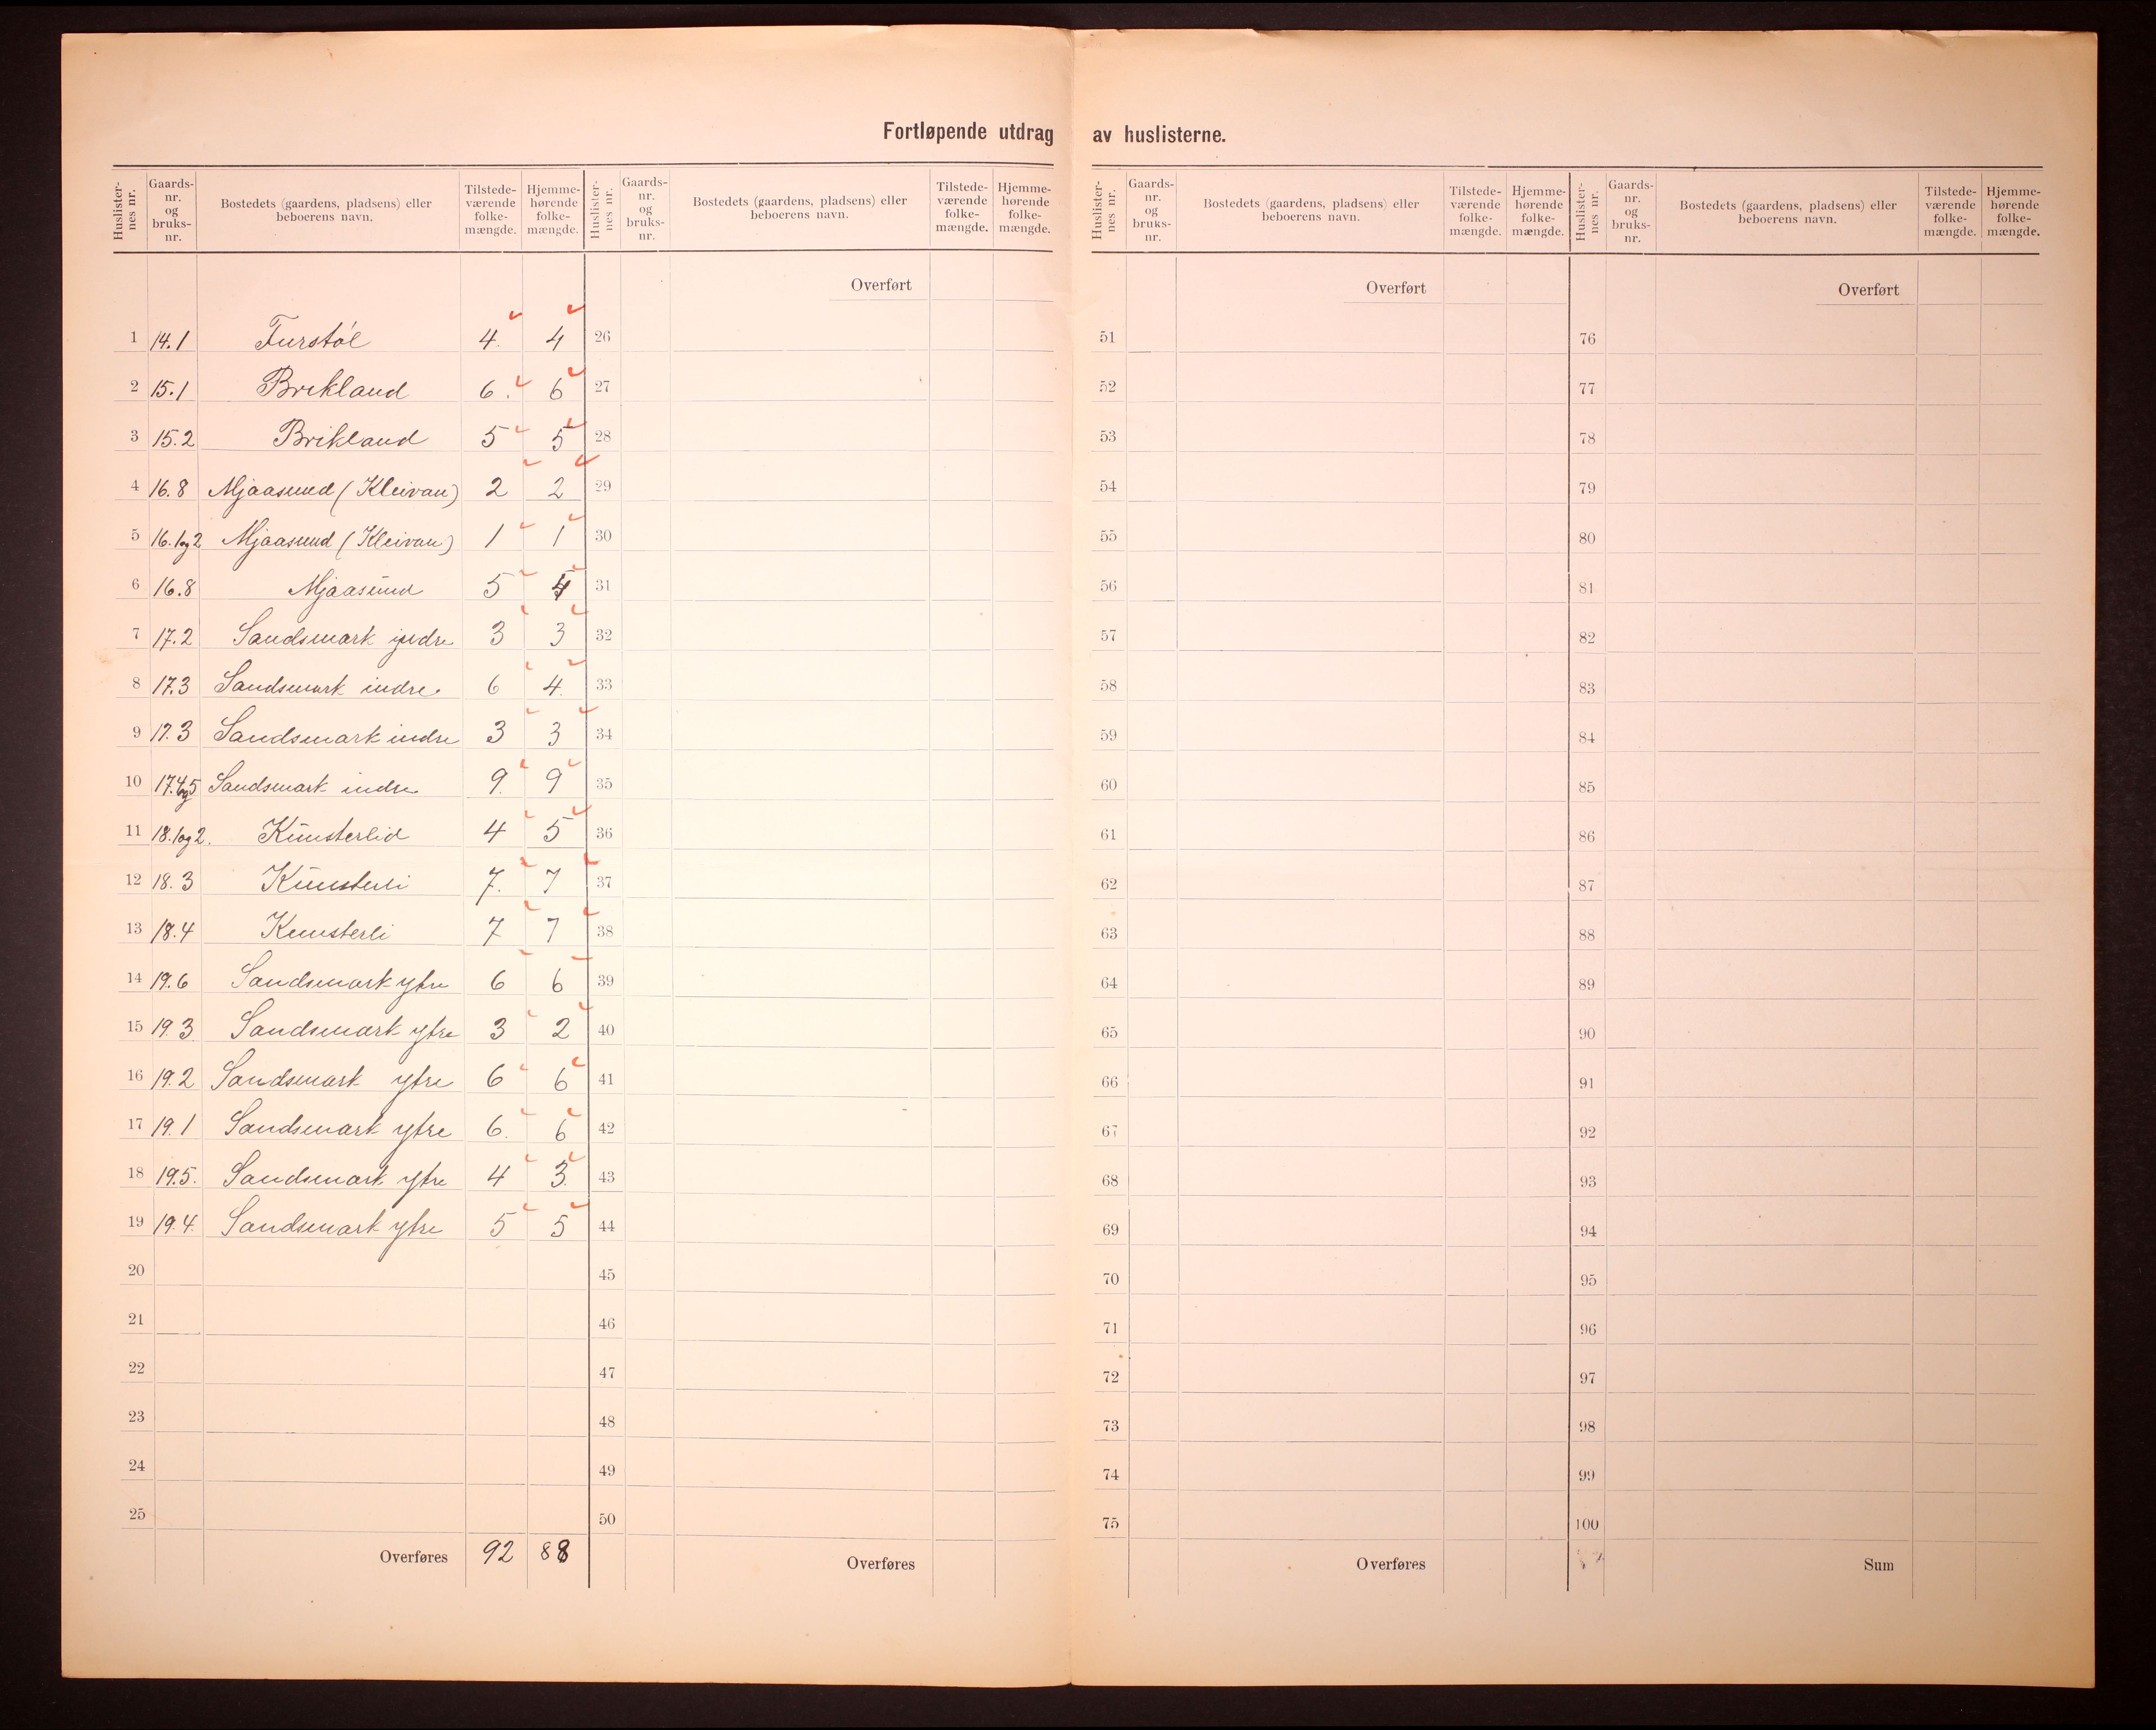 Fortløpende utdrag av huslisterne.
Huslisternes nr. Gaards-nr. og bruks-nr. Bostedets (gaardens, pladsens) eller beboerens navn. Tilstede-værende folke-mængde. Hjemme-hørende folke-mængde.
1 14.1 Furstøl 4 4
2 15.1 Brekland 6. 6
3 15.2 Brikland 5 5
4 16.8 Mjaasund (Kleivan) 2 2
5 16.1og2 Mjaasund (Kleivan) 1 1
6 16.8 Mjaasund 5
7 17.2 Sandsmark indre 3 3
8 17.3 Sandsmark indre 6 4.
9 17.3 Sandsmark indre 3 3
10 17.4og5 Sandsmark indre 9. 9
11 18.1og2. Kunsterlid 4 5
12 18.3 Kunsterli 7. 7
13 18.4 Kunsterli 7 7
14 19.6 Sandsmark ytre 6 6
15 19.3 Sandsmark ytre 3 2
16 19.2 Sandsmark ytre 6 6
17 19.1 Sandsmark ytre 6. 6
18 19.5. Sandsmark ytre 4 3.
19 19.4. Sandsmark ytre 5 5
20
21
22
23
24
25
Overføres 92 88
Huslisternes nr. Gaards-nr. og bruks-nr. Bostedets (gaardens, pladsens) eller beboerens navn. Tilstede-værende folke-mængde. Hjemme-hørende folke-mængde.
Overført
26
27
28
29
30
31
32
33
34
35
36
37
38
39
40
41
42
43
44
45
46
47
48
49
50
Overføres
Huslisternes nr. Gaards-nr. og bruks-nr. Bostedets (gaardens, pladsens) eller beboerens navn. Tilstede-værende folke-mængde. Hjemme-hørende folke-mængde.
Overført
51
52
53
54
55
56
57
58
59
60
61
62
63
64
65
66
67
68
69
70
71
72
73
74
75
Overføres
Huslisternes nr. Gaards-nr. og bruks-nr. Bostedets (gaardens, pladsens) eller beboerens navn. Tilstede-værende folke-mængde. Hjemme-hørende folke-mængde.
Overført
76
77
78
79
80
81
82
83
84
85
86
87
88
89
90
91
92
93
94
95
96
97
98
99
100
Sum